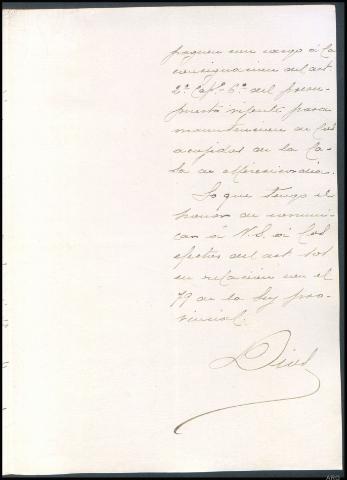 paguen con cargo á la
consignacion del art.
2º. Capº. 6º. del presu-
puesto vigente para
manutencion de los
acogidos en la Ca-
sa de Misericordia.
Lo que tengo el
honor de comuni-
car á V.S. á los
efectos del art. 101
en relacion con el
79 de la ley pro-
vincial.
ARQ